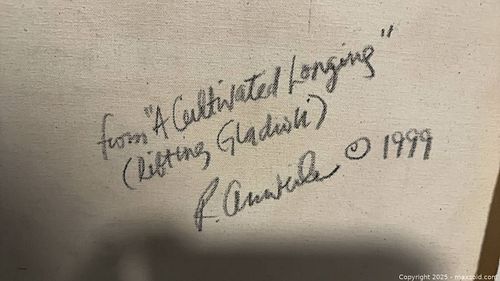 from "A Cultivated Longing"
(Rifting Gladioli)
R. © 1999
Copyright 2025 - maxsold.com